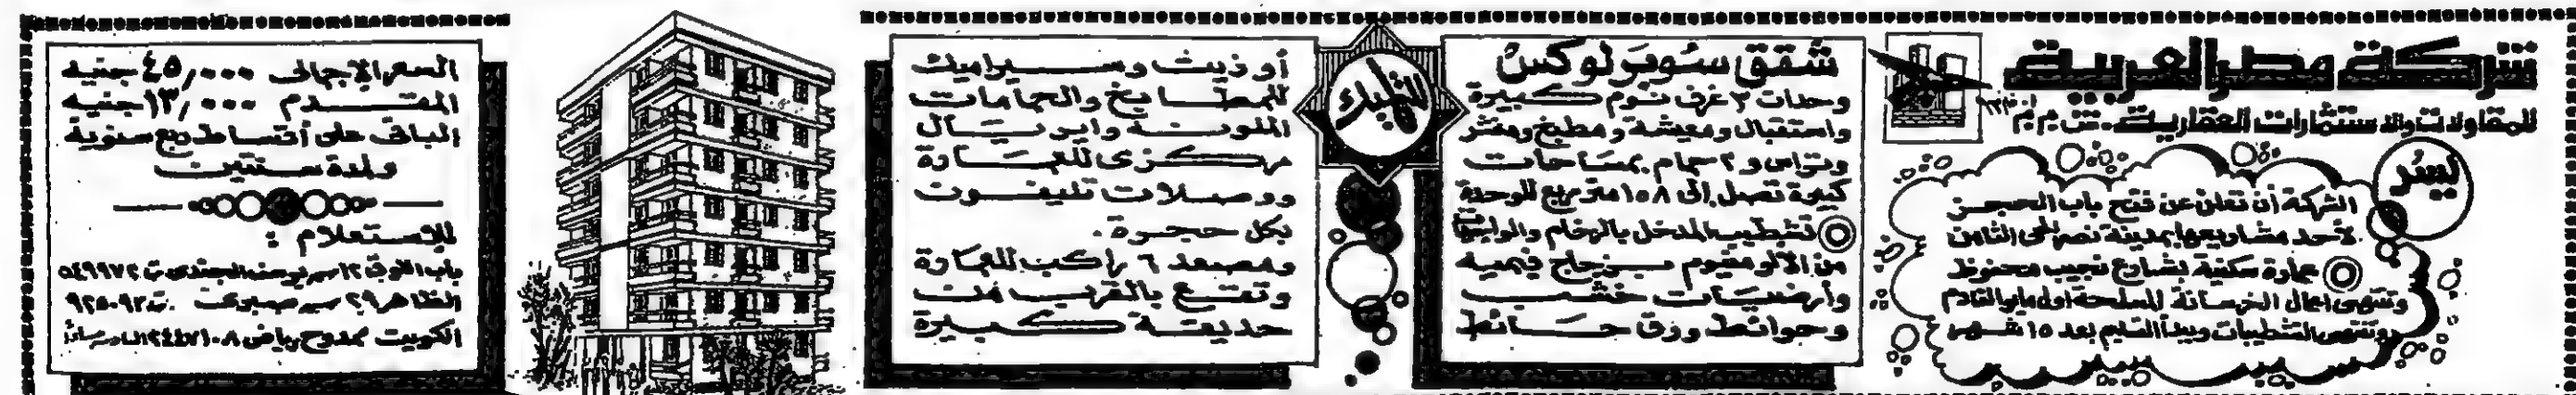 شركة مصر العربية
للمقاولات والاستثمارات العقارية ش.م.م
يسر
الشركة أن تعلن عن فتح باب الحجز
لأحد مشاريعها بمدينة نصر الحى الثامن
عمارة سكنية بشارع نجيب محفوظ
وتنتهى اعمال الخرسانة المسلحة اول مايو القادم
وتنتهى التشطيبات ويبدأ التسليم بعد ١٥ شهر
شقق سوبر لوكس
وحدات ٣ غرف نوم كبيرة
واستقبال ومعيشة ومطبخ ومقتر
وتراس و٢ حمام بمساحات
كبيرة تصل إلى ١٥٨ متر مربع للوحدة
تشطيب المدخل بالرخام والواجهة
من الألومنيوم بزجاج فيميه
وأرضيات خشب
وحوائط ورق حائط
أو زيت وسيراميك
للمطابخ والحمامات
الملونة وايريال
مركزى للعمارة
ووصلات تليفون
بكل حجرة.
ومصعد ٦ راكب للعمارة
وتقع بالقرب من
حديقة كبيرة
السعر الإجمالى ٤٥,٠٠٠ جنيه
المقدم ١٣,٠٠٠ جنيه
الباقى على أقساط ربع سنوية
ولمدة سنتين
للإستعلام :
باب اللوق ١٢ ش يوسف الجندى ت ٥٤٩٩٧٢
الظاهر ٢٩ ش صبرى ت ٩٢٥٠٩٢
الكويت ممدوح رياض